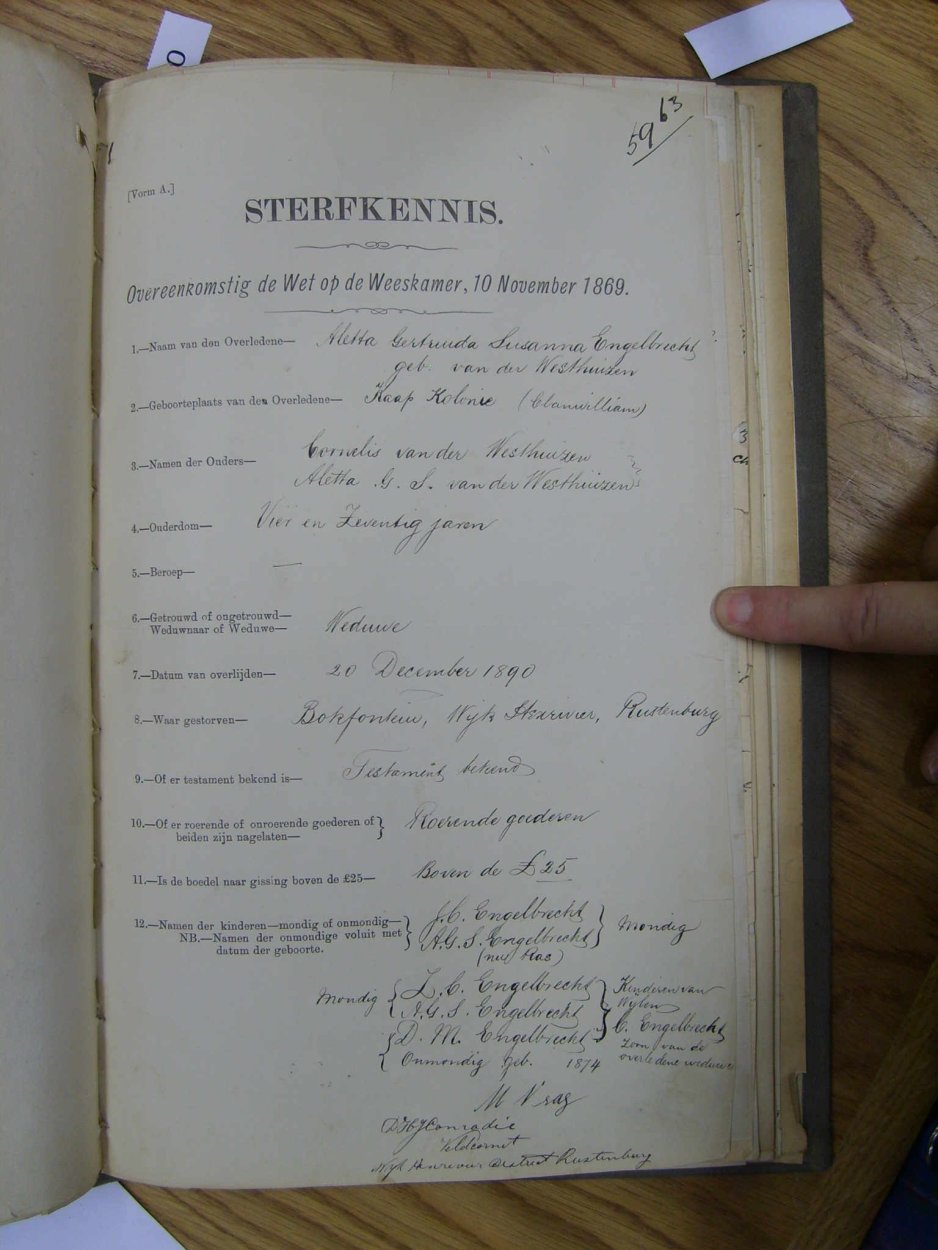 59 63
[Vorm A.]
STERFKENNIS.
Overeenkomstig de Wet op de Weeskamer, 10 November 1869.
1.—Naam van den Overledene— Aletta Gertruida Susanna Engelbrecht
geb. van der Westhuizen
2.—Geboorteplaats van den Overledene— Kaap Kolonie (Clanwilliam)
3.—Namen der Ouders— Cornelis van der Westhuizen
Aletta G. S. van der Westhuizen
4.—Ouderdom— Vier en Zeventig jaren
5.—Beroep— —
6.—Getrouwd of ongetrouwd—
Weduwnaar of Weduwe— Weduwe
7.—Datum van overlijden— 20 December 1890
8.—Waar gestorven— Bokfontein, Wyk Hexrivier, Rustenburg
9.—Of er testament bekend is— Testament bekend
10.—Of er roerende of onroerende goederen of
beiden zijn nagelaten— Roerende goederen
11.—Is de boedel naar gissing boven de £25— Boven de £25
12.—Namen der kinderen—mondig of onmondig— J.C. Engelbrecht
NB.—Namen der onmondige voluit met A.G.S. Engelbrecht Mondig
datum der geboorte. (nu)
Mondig Z. C. Engelbrecht Kinderen van
A.G.S. Engelbrecht Wylen
D. M. Engelbrecht C. Engelbrecht
Onmondig geb. 1874 Zoon van de
overledene weduwe
Conradie
Veldcornet
Wyk Hexrivier District Rustenburg